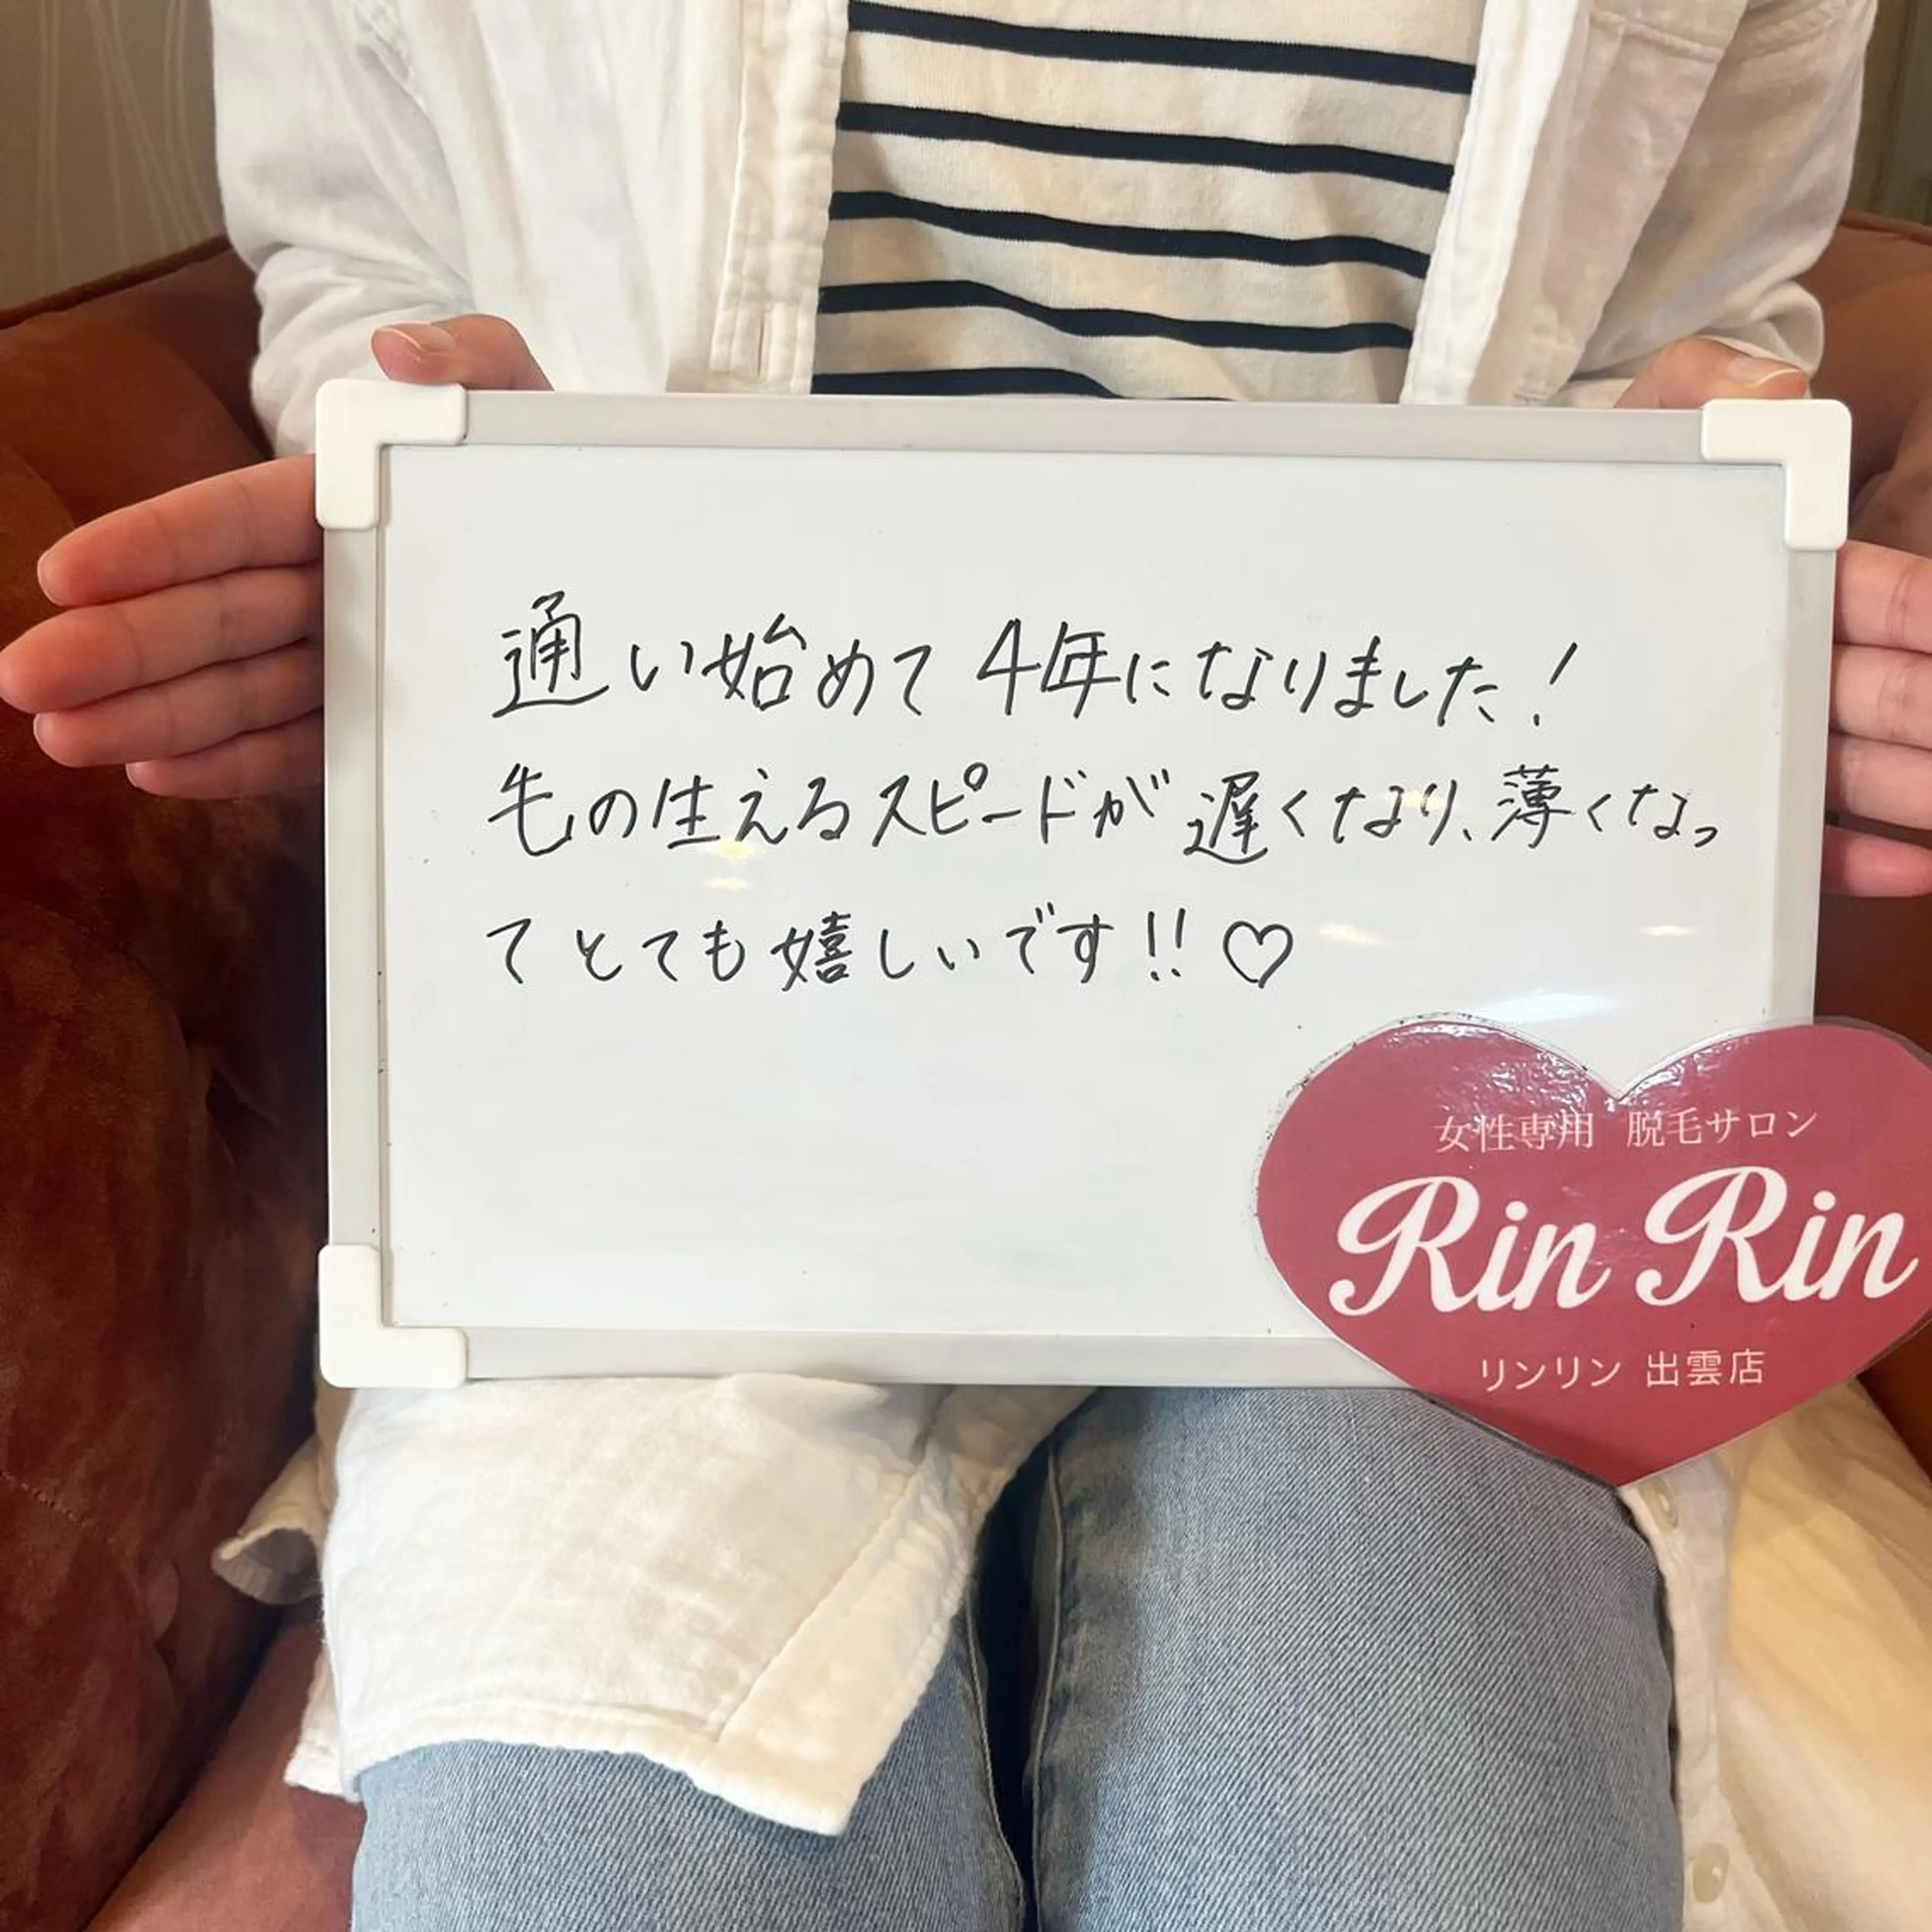 通い始めて4年になりました!
毛の生えるスピードが遅くなり、薄くなっ
てとても嬉しいです!!♡
女性専用 脱毛サロン
Rin Rin
リンリン 出雲店